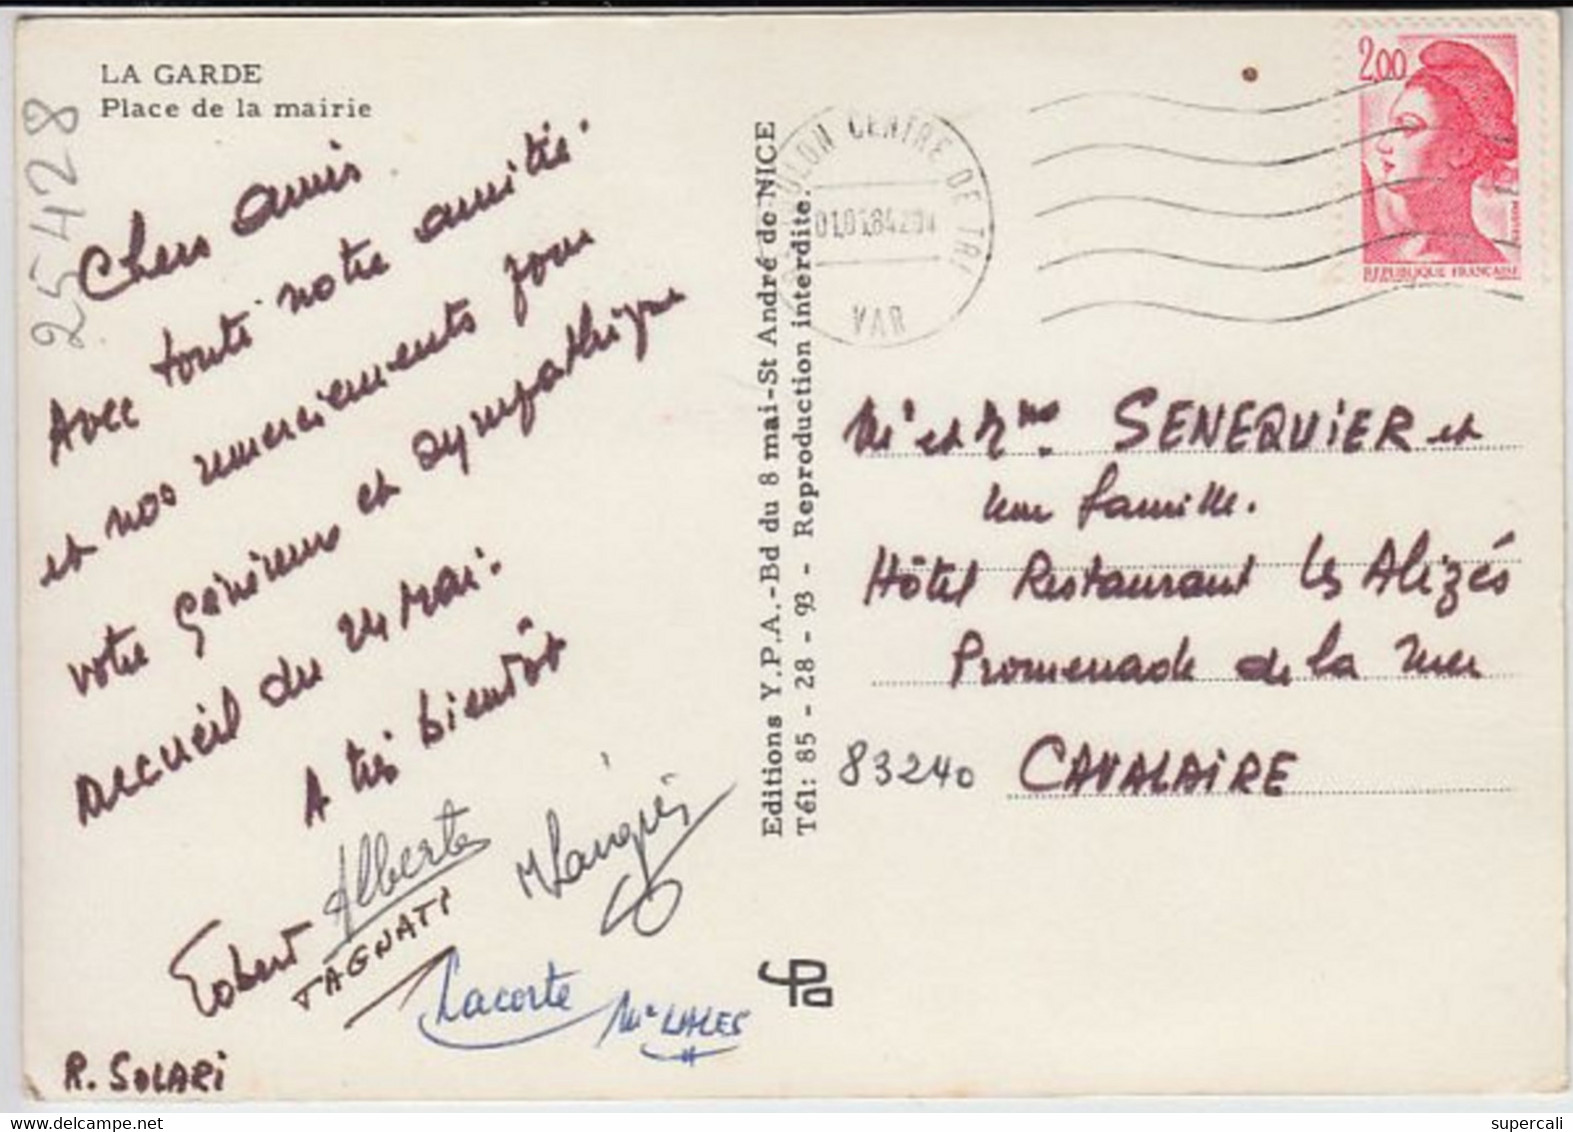 LA GARDE
Place de la mairie
25428
Chers amis
Avec toute notre amitié
et nos remerciements pour
votre généreux et sympathique
accueil du 1er Mai.
A très bientôt
Robert
Alberte
TAGNATI
Lacorte
Mr LALES
R. SOLARI
Editions Y.P.A.-Bd du 8 mai-St André de NICE
Tél: 85 - 28 - 93 - Reproduction interdite.
CENTRE DE TRI
VAR
2,00
REPUBLIQUE FRANÇAISE
Mr et Mme SENEQUIER et
leur famille.
Hôtel Restaurant les Alizés
Promenade de la mer
83240 CAVALAIRE
supercali